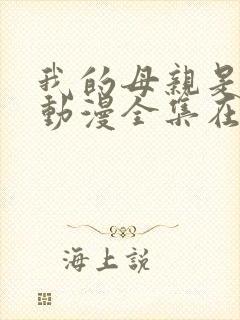 我的母親是
動漫全集在
海上説